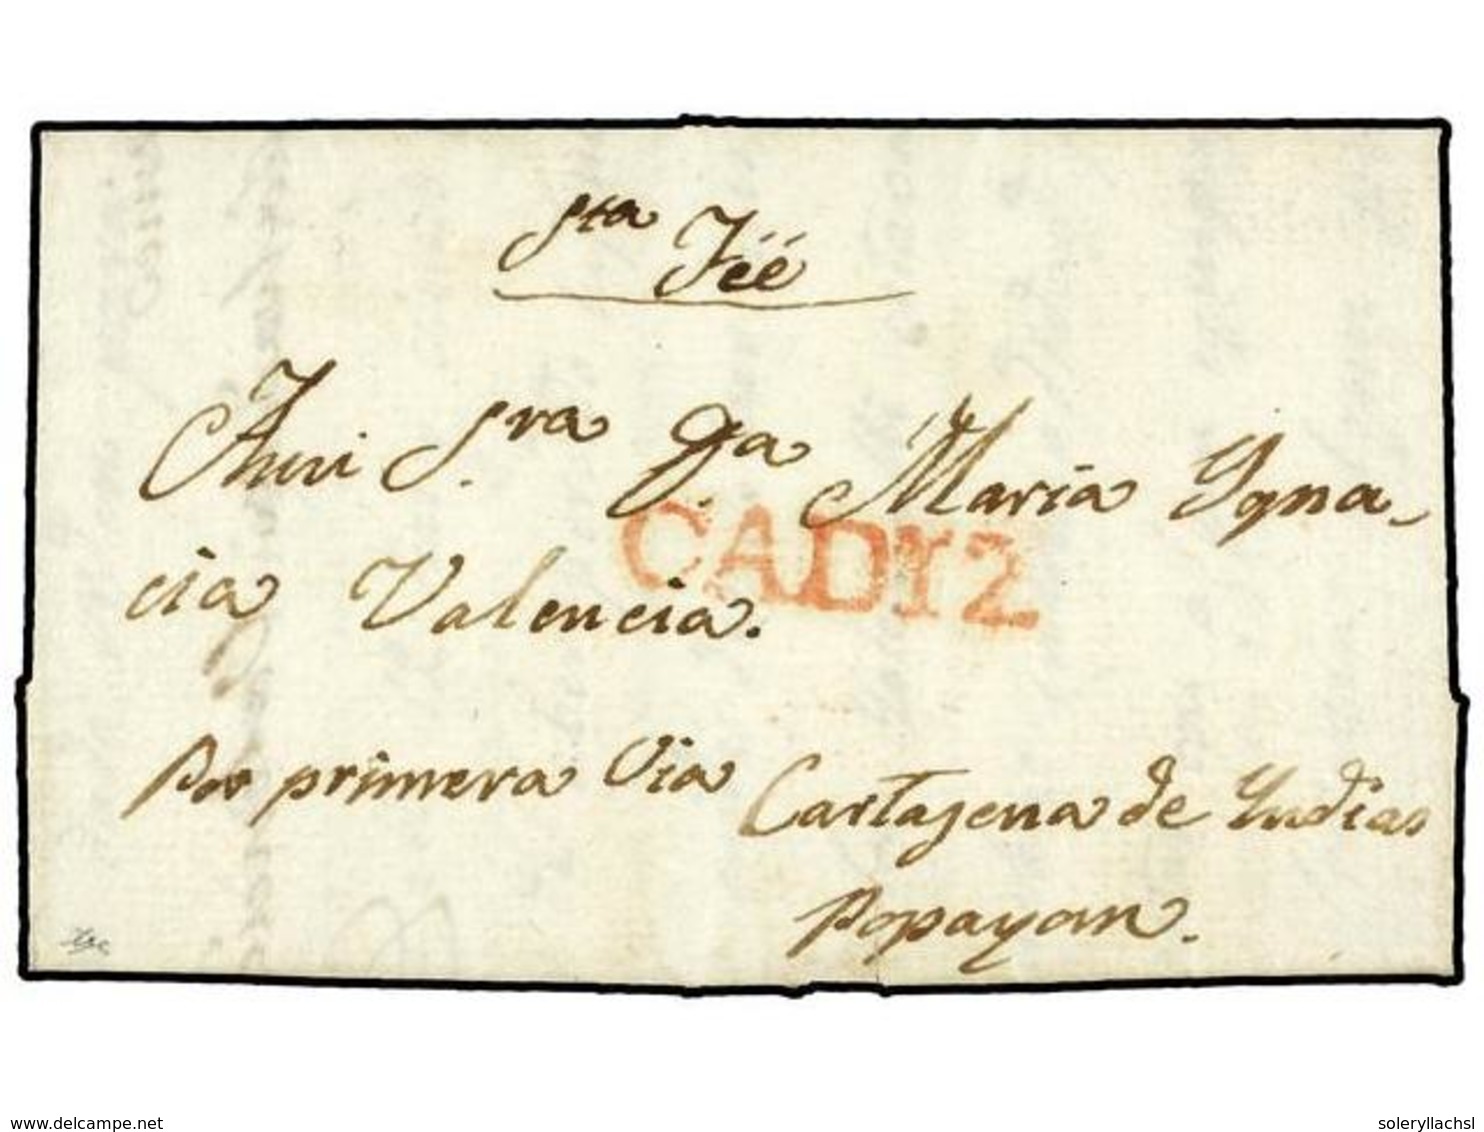 Sta Féé
A mi Sra Da Maria Ygna-
cia Valencia.
CADIZ
Por primera Via Cartajena de Yndias
Popayan.
www.delcampe.net
soleryllachsl